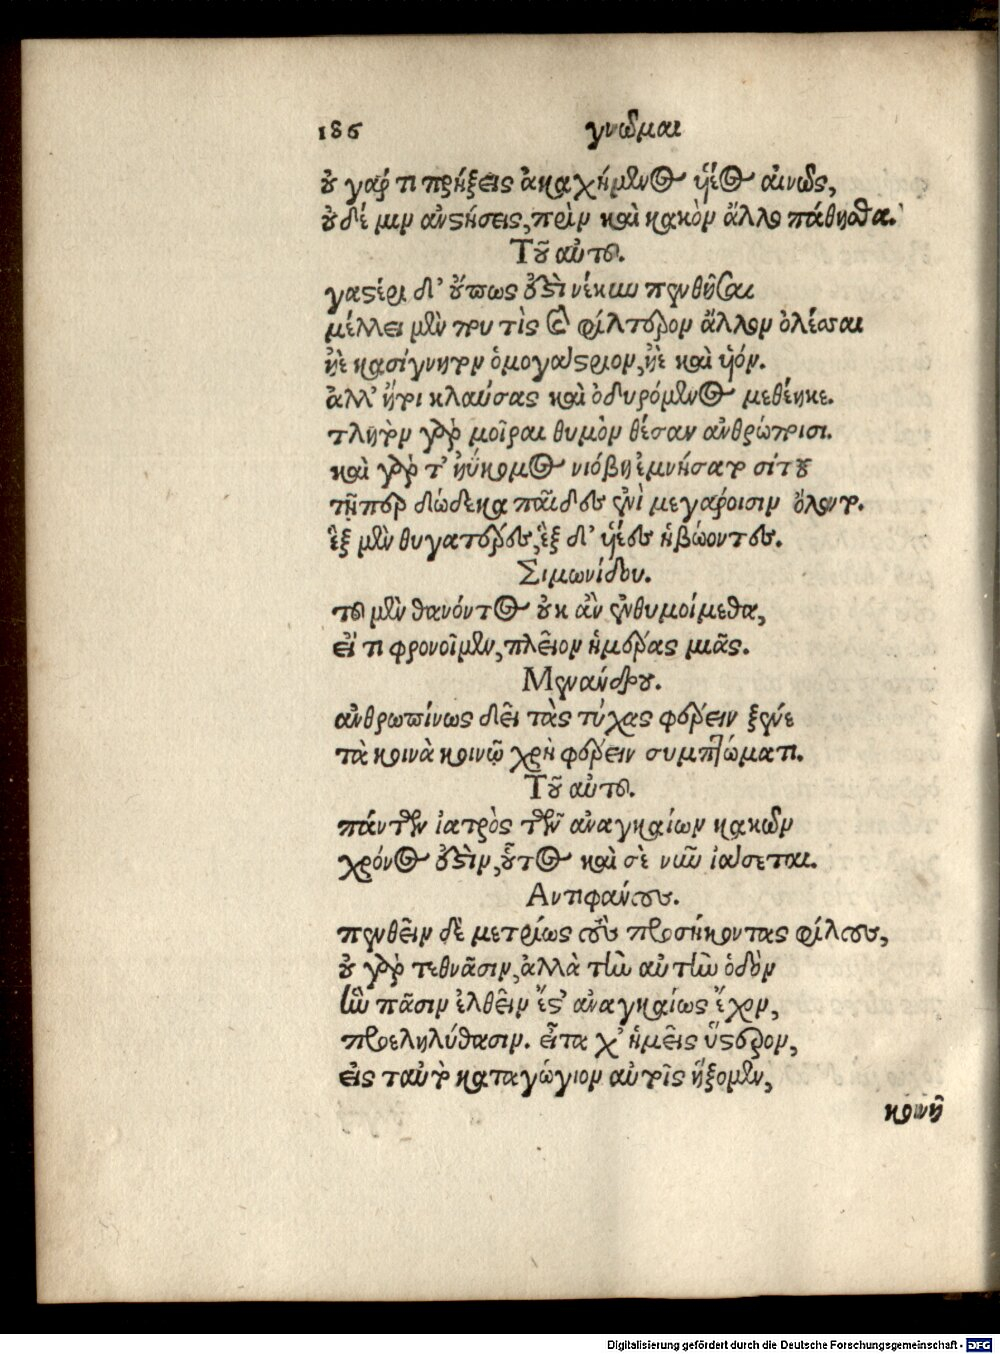 186 γνῶμαι
οὐ γάρ τι πρήξεις ἀκαχήμενος υἷέος αἰνῶς,
οὐδέ μιν ἀνστήσεις, πρὶν καὶ κακὸν ἄλλο πάθησθα.
Τοῦ αὐτοῦ.
γαστέρι δ' οὔπως ἐστὶ νέκυν πενθῆσαι
μέλλει μέν που τὶς καὶ φίλτερον ἄλλον ὀλέσσαι
ἠὲ κασίγνητον ὁμογάστριον, ἠὲ καὶ υἱόν.
ἀλλ' ἤτοι κλαύσας καὶ ὀδυρόμενος μεθέηκε.
τλητὸν γὰρ μοῖραι θυμὸν θέσαν ἀνθρώποισι.
καὶ γὰρ τ' ἠΰκομος νιόβη ἐμνήσατο σίτου
τῇπερ δώδεκα παῖδες ἐνὶ μεγάροισιν ὄλοντο.
ἓξ μὲν θυγατέρες, ἓξ δ' υἱέες ἡβώοντες.
Σιμωνίδου.
τοῦ μὲν θανόντος οὐκ ἂν ἐνθυμοίμεθα,
εἴ τι φρονοῖμεν, πλεῖον ἡμέρας μιᾶς.
Μενάνδρου.
ἀνθρωπίνως δεῖ τὰς τύχας φέρειν ξένε
τὰ κοινὰ κοινῷ χρὴ φέρειν συμπτώματι.
Τοῦ αὐτοῦ.
πάντων ἰατρὸς τῶν ἀναγκαίων κακῶν
χρόνος ἐστὶν, οὗτος καὶ σὲ νῦν ἰάσεται.
Αντιφάνους.
πενθεῖν δὲ μετρίως τοὺς προσήκοντας φίλους,
οὐ γὰρ τεθνᾶσιν, ἀλλὰ τὴν αὐτὴν ὁδὸν
ἣν πᾶσιν ἐλθεῖν ἔστ' ἀναγκαίως ἔχον,
προεληλύθασιν. εἶτα χ' ἡμεῖς ὕστερον,
εἰς ταὐτὸ καταγώγιον αὐτοῖς ἥξομεν,
κοινῇ
Digitalisierung gefördert durch die Deutsche Forschungsgemeinschaft - DFG